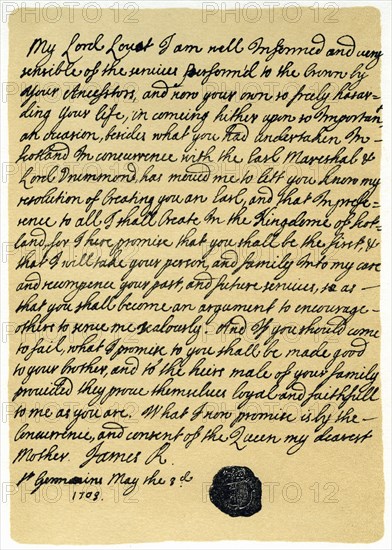 My Lord Lovat I am well Informed and very
sensible of the services perform'd to the Crown by
your Ancestors, and now your own so freely hasar-
ding your life, in comeing hither upon so Importan
an ocasion, besides what you had undertaken In
Scotland In concurrence with the Earl Mareshal &
Lord Drummond, has moued me to lett you know my
resolution of Creating you an Earl, and that In prefe-
rence to all I shall Create In the Kingdome of Scot-
land, for I here promise that you shall be the first, &
that I will take your person, and family Into my care
and recompence your past, and future seruices, so as
that you shall become an argument to encourage
others to serue me zealously. And If you should come
to fail, what I promise to you shall be made good
to your brother, and to the heirs male of your family
prouided they proue themselues loyal and faithfull
to me as you are. What I now promise is by the
Concurrence, and consent of the Queen my dearest
Mother. James R.
St Germains May the 3d
1703.
PHOTO12